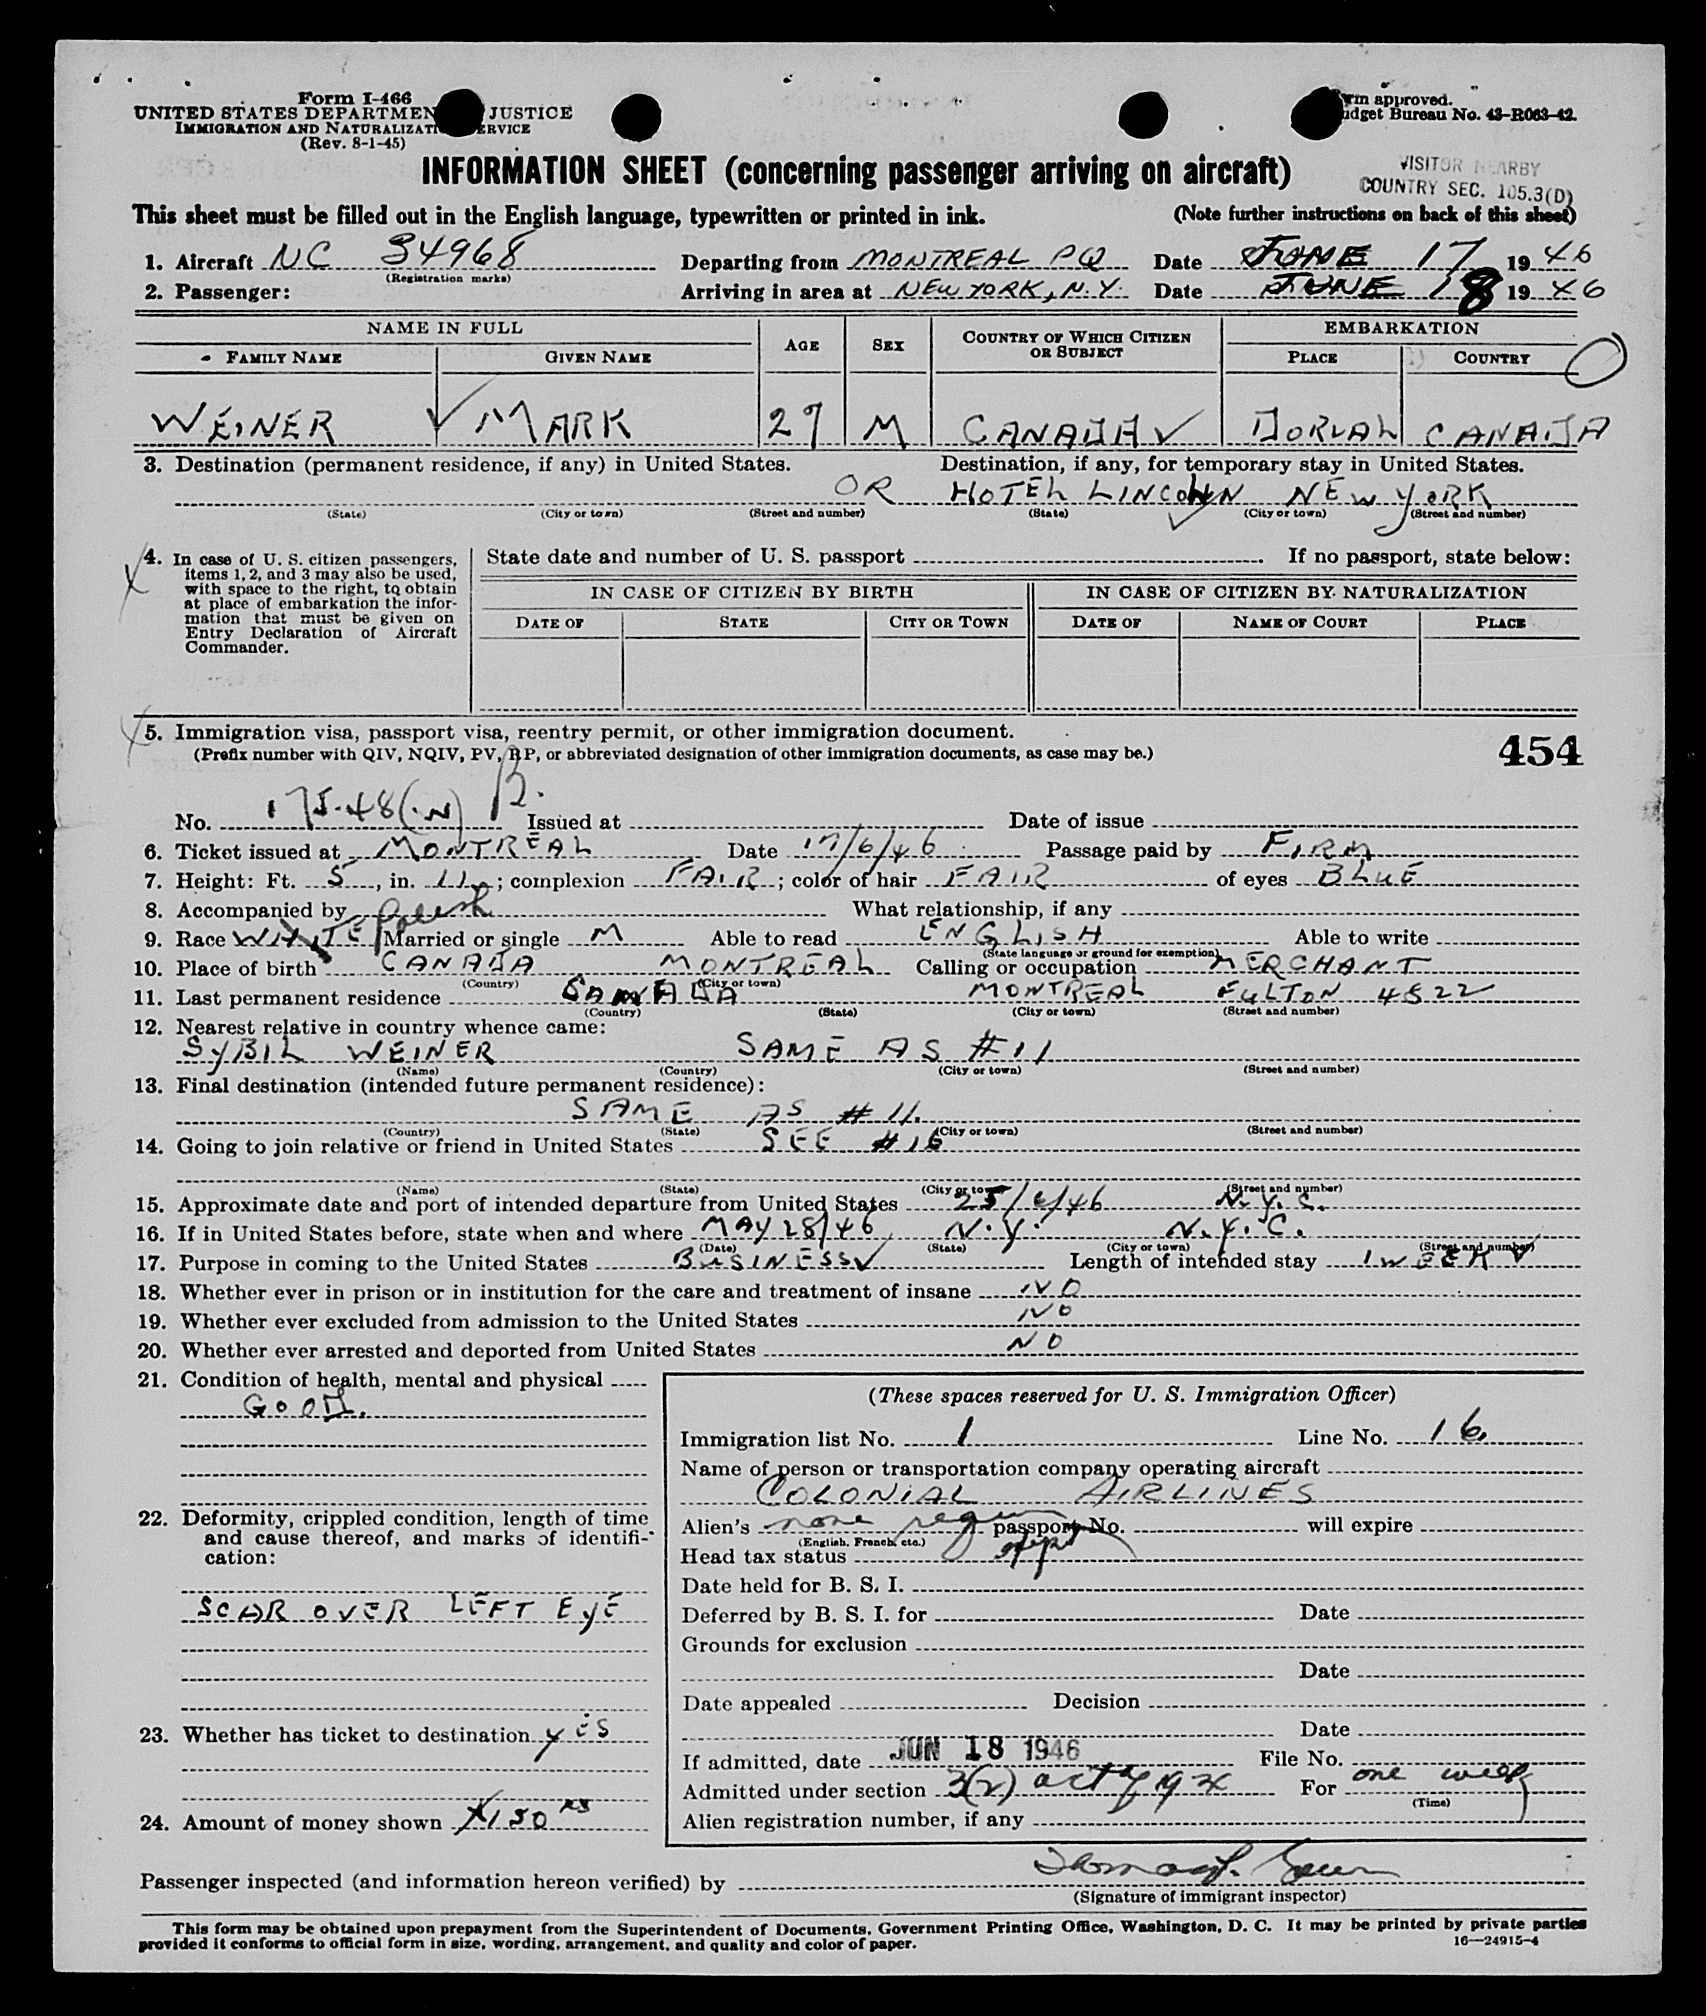 Form I-466
UNITED STATES DEPARTMEN JUSTICE
IMMIGRATION AND NATURALIZATI ERVICE
(Rev. 8-1-45)
rm approved.
udget Bureau No. 43-R063-42.
INFORMATION SHEET (concerning passenger arriving on aircraft)
VISITOR NEARBY
COUNTRY SEC. 105.3(D)
This sheet must be filled out in the English language, typewritten or printed in ink.
(Note further instructions on back of this sheet)
1. Aircraft NC 34968 Departing from MONTREAL PQ Date JUNE 17 1946
(Registration marks)
2. Passenger: Arriving in area at NEW YORK, N.Y. Date JUNE 18 1946
NAME IN FULL AGE SEX COUNTRY OF WHICH CITIZEN OR SUBJECT EMBARKATION
FAMILY NAME GIVEN NAME PLACE COUNTRY
WEINER MARK 27 M CANADA DORVAL CANADA
3. Destination (permanent residence, if any) in United States. Destination, if any, for temporary stay in United States.
OR HOTEL LINCOLN NEW YORK
(State) (City or town) (Street and number) (State) (City or town) (Street and number)
4. In case of U. S. citizen passengers, items 1, 2, and 3 may also be used, with space to the right, to obtain at place of embarkation the information that must be given on Entry Declaration of Aircraft Commander.
State date and number of U. S. passport . If no passport, state below:
IN CASE OF CITIZEN BY BIRTH IN CASE OF CITIZEN BY NATURALIZATION
DATE OF STATE CITY OR TOWN DATE OF NAME OF COURT PLACE
5. Immigration visa, passport visa, reentry permit, or other immigration document.
(Prefix number with QIV, NQIV, PV, RP, or abbreviated designation of other immigration documents, as case may be.)
454
No. Issued at Date of issue
6. Ticket issued at MONTREAL Date 17/6/46 Passage paid by FIRM
7. Height: Ft. 5, in. 11; complexion FAIR; color of hair FAIR of eyes BLUE
8. Accompanied by What relationship, if any
9. Race WHITE Married or single M Able to read ENGLISH Able to write
(State language or ground for exemption)
10. Place of birth CANADA MONTREAL Calling or occupation MERCHANT
(Country) (City or town)
11. Last permanent residence CANADA MONTREAL FULTON 4822
(Country) (State) (City or town) (Street and number)
12. Nearest relative in country whence came:
SYBIL WEINER SAME AS #11
(Name) (Country) (City or town) (Street and number)
13. Final destination (intended future permanent residence):
SAME AS #11.
(Country) (State) (City or town) (Street and number)
14. Going to join relative or friend in United States SEE #16
(Name) (State) (City or town) (Street and number)
15. Approximate date and port of intended departure from United States 25/6/46 N.Y.C.
16. If in United States before, state when and where MAY 28/46 N.Y. N.Y.C.
(Date) (State) (City or town) (Street and number)
17. Purpose in coming to the United States BUSINESS Length of intended stay 1 WEEK
18. Whether ever in prison or in institution for the care and treatment of insane NO
19. Whether ever excluded from admission to the United States NO
20. Whether ever arrested and deported from United States NO
21. Condition of health, mental and physical
GOOD.
22. Deformity, crippled condition, length of time and cause thereof, and marks of identification:
SCAR OVER LEFT EYE
23. Whether has ticket to destination YES
24. Amount of money shown $150
(These spaces reserved for U. S. Immigration Officer)
Immigration list No. 1 Line No. 16
Name of person or transportation company operating aircraft
COLONIAL AIRLINES
Alien's none passport No. will expire
(English, French, etc.)
Head tax status
Date held for B. S. I.
Deferred by B. S. I. for Date
Grounds for exclusion
Date
Date appealed Decision
Date
If admitted, date JUN 18 1946 File No.
Admitted under section 3(2) act of 1924 For one week
(Time)
Alien registration number, if any
Passenger inspected (and information hereon verified) by
(Signature of immigrant inspector)
This form may be obtained upon prepayment from the Superintendent of Documents, Government Printing Office, Washington, D. C. It may be printed by private parties
provided it conforms to official form in size, wording, arrangement, and quality and color of paper.
16—24915-4